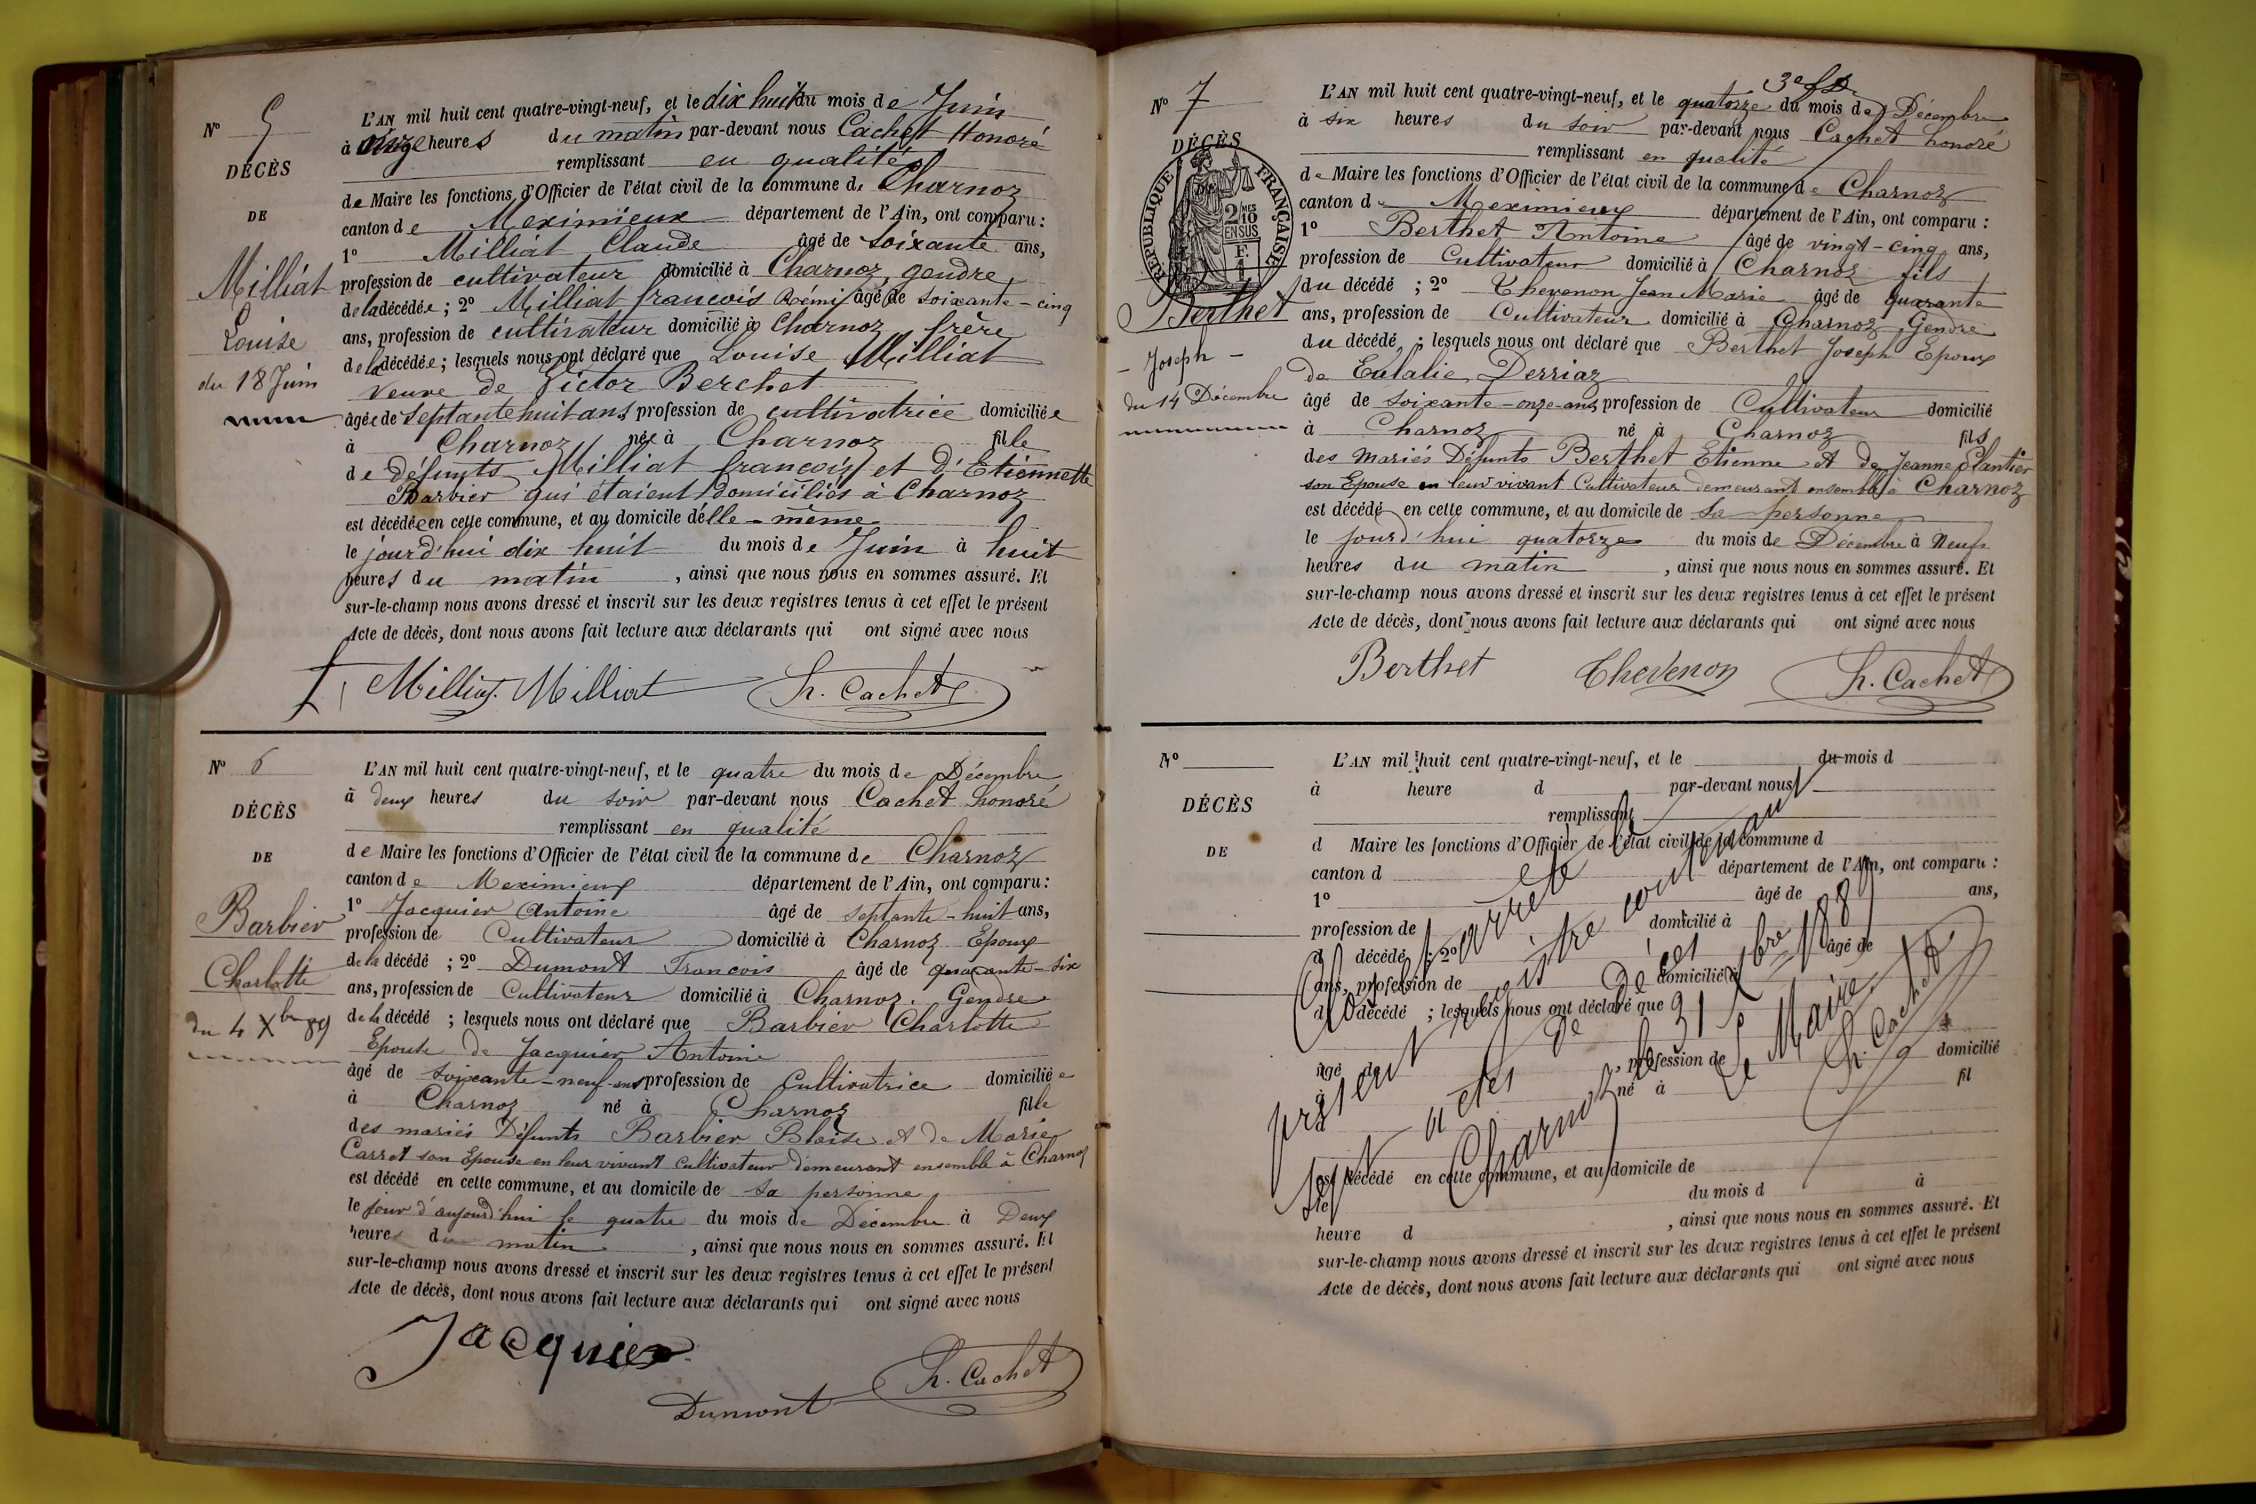 N° 5
DÉCÈS
DE
Milliat
Louise
du 18 Juin
L'AN mil huit cent quatre-vingt-neuf, et le dix huit du mois de Juin
à onze heures du matin par-devant nous Cachet Honoré
remplissant en qualité
de Maire les fonctions d'Officier de l'état civil de la commune de Charnoz
canton de Meximieux département de l'Ain, ont comparu :
1° Milliat Claude âgé de soixante ans,
profession de cultivateur domicilié à Charnoz gendre
de la décédée ; 2° Milliat françois Rémi âgé de soixante-cinq
ans, profession de cultivateur domicilié à Charnoz frère
de la décédée ; lesquels nous ont déclaré que Louise Milliat
veuve de Victor Berchet
âgée de septante huit ans profession de cultivatrice domiciliée
à Charnoz née à Charnoz fille
de défunts Milliat françois et d'Etiennette
Barbier qui étaient domiciliés à Charnoz
est décédée en cette commune, et au domicile d'elle-même
le jourd'hui dix huit du mois de Juin à huit
heures du matin , ainsi que nous nous en sommes assuré. Et
sur-le-champ nous avons dressé et inscrit sur les deux registres tenus à cet effet le présent
Acte de décès, dont nous avons fait lecture aux déclarants qui ont signé avec nous
Milliat Milliat h. Cachet
N° 6
DÉCÈS
DE
Barbier
Charlotte
du 4 Xbre 89
L'AN mil huit cent quatre-vingt-neuf, et le quatre du mois de Décembre
à deux heures du soir par-devant nous Cachet honoré
remplissant en qualité
de Maire les fonctions d'Officier de l'état civil de la commune de Charnoz
canton de Meximieux département de l'Ain, ont comparu :
1° Jacquier Antoine âgé de septante-huit ans,
profession de Cultivateur domicilié à Charnoz Epoux
de la décédé ; 2° Dumont François âgé de quarante-six
ans, profession de Cultivateur domicilié à Charnoz. Gendre
de la décédé ; lesquels nous ont déclaré que Barbier Charlotte
Epouse de Jacquier Antoine
âgé de soixante-neuf-ans profession de Cultivatrice domiciliée
à Charnoz né à Charnoz fille
des mariés Défunts Barbier Blaise et de Marie
Carret son Epouse en leur vivant Cultivateur demeurant ensemble à Charnoz
est décédé en cette commune, et au domicile de sa personne
le jour d'aujourd'hui le quatre du mois de Décembre à Deux
heures du matin , ainsi que nous nous en sommes assuré. Et
sur-le-champ nous avons dressé et inscrit sur les deux registres tenus à cet effet le présent
Acte de décès, dont nous avons fait lecture aux déclarants qui ont signé avec nous
Jacquier
Dumont h. Cachet
N° 7
DÉCÈS
DE
RÉPUBLIQUE FRANÇAISE
2 MES 10 EN SUS
Berthet
Joseph
du 14 Décembre
L'AN mil huit cent quatre-vingt-neuf, et le quatorze du mois de Décembre
à six heures du soir par-devant nous Cachet honoré
remplissant en qualité
de Maire les fonctions d'Officier de l'état civil de la commune de Charnoz
canton de Meximieux département de l'Ain, ont comparu :
1° Berthet Antoine âgé de vingt-cinq ans,
profession de Cultivateur domicilié à Charnoz fils
du décédé ; 2° Thevenon Jean Marie âgé de quarante
ans, profession de Cultivateur domicilié à Charnoz Gendre
du décédé ; lesquels nous ont déclaré que Berthet Joseph Epoux
de Eulalie Derriaz
âgé de soixante-onze-ans profession de Cultivateur domicilié
à Charnoz né à Charnoz fils
des mariés Défunts Berthet Etienne et de Jeanne Plantier
son Epouse en leur vivant Cultivateur demeurant ensemble à Charnoz
est décédé en cette commune, et au domicile de sa personne
le jourd'hui quatorze du mois de Décembre à Neuf
heures du matin , ainsi que nous nous en sommes assuré. Et
sur-le-champ nous avons dressé et inscrit sur les deux registres tenus à cet effet le présent
Acte de décès, dont nous avons fait lecture aux déclarants qui ont signé avec nous
Berthet Thevenon h. Cachet
N°
DÉCÈS
DE
L'AN mil huit cent quatre-vingt-neuf, et le du mois d
à heure d par-devant nous
remplissant
d Maire les fonctions d'Officier de l'état civil de la commune d
canton d département de l'Ain, ont comparu :
1° âgé de ans,
profession de domicilié à
d décédé ; 2° âgé de
ans, profession de domicilié à
d décédé ; lesquels nous ont déclaré que
âgé de , profession de domicilié
à né à fil
d
est décédé en cette commune, et au domicile de
le du mois d à
heure d , ainsi que nous nous en sommes assuré. Et
sur-le-champ nous avons dressé et inscrit sur les deux registres tenus à cet effet le présent
Acte de décès, dont nous avons fait lecture aux déclarants qui ont signé avec nous
Clos et arrêté le
présent registre contenant
sept actes de décès
Charnoz le 31 Xbre 1889
Le Maire
h. Cachet